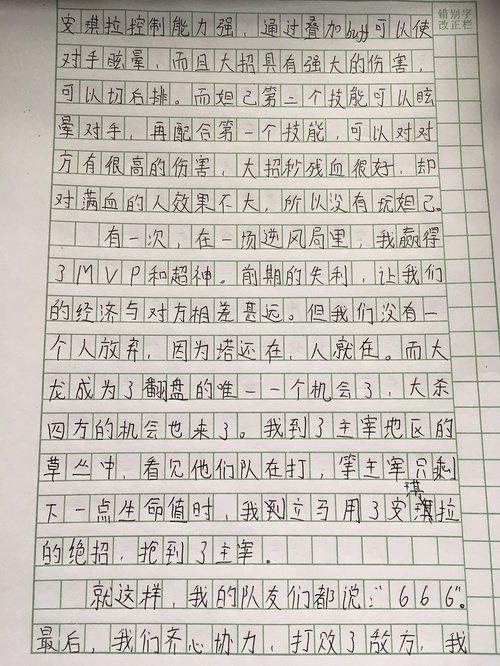 错别字
改正栏
安琪拉控制能力强，通过叠加buff可以使
对手眩晕，而且大招具有强大的伤害，
可以切后排。而妲己第二个技能可以眩
晕对手，再配合第一个技能，可以对对
方有很高的伤害，大招秒残血很好，却
对满血的人效果不大，所以没有玩妲己。
有一次，在一场逆风局里，我赢得
了MVP和超神。前期的失利，让我们
的经济与对方相差甚远。但我们没有一
个人放弃，因为塔还在，人就在。而大
龙成为了翻盘的唯一一个机会了，大杀
四方的机会也来了。我到了主宰地区的
草丛中，看见他们队在打，等主宰只剩
下一点生命值时，我到立马用了安琪拉
的绝招，抢到了主宰。
就这样，我的队友们都说：“666”。
最后，我们齐心协力，打败了敌方，我